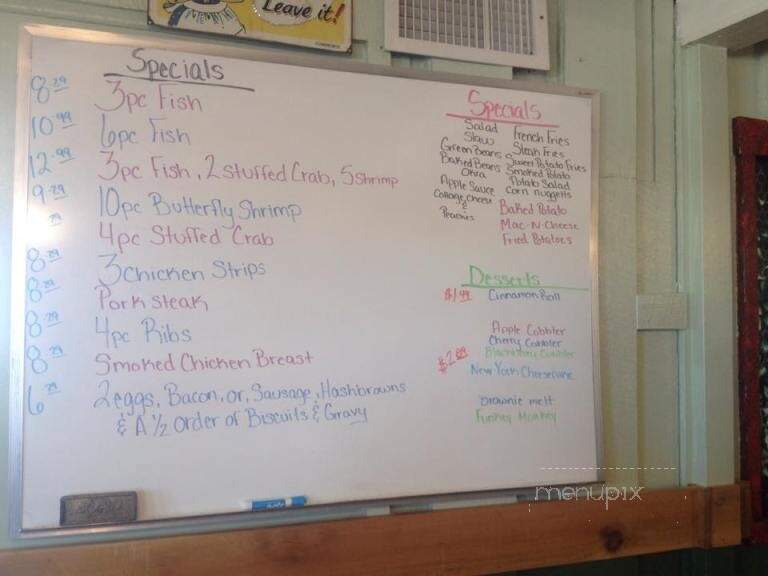 Leave it!
Specials
8.29 3pc Fish
10.99 6pc Fish
12.99 3pc Fish, 2 stuffed Crab, 5 shrimp
9.29 10pc Butterfly Shrimp
.29 4pc Stuffed Crab
8.29 3 Chicken Strips
8.29 Pork steak
8.29 4pc Ribs
8.29 Smoked Chicken Breast
6.29 2 eggs, Bacon, or, Sausage, Hashbrowns
& A 1/2 order of Biscuits & Gravy
Specials
Salad
Slaw
Green Beans
Baked Beans
Okra
Apple Sauce
Cottage Cheese
&
Peaches
French Fries
Steak Fries
Sweet Potato Fries
Smoked Potato
Potato Salad
Corn nuggetts
Baked Potato
Mac-N-Cheese
Fried Potatoes
Desserts
$1.99 Cinnamon Roll
Apple Cobbler
Cherry Cobbler
Blackberry Cobbler
New York Cheesecake
Brownie melt
Funkey Monkey
menupix